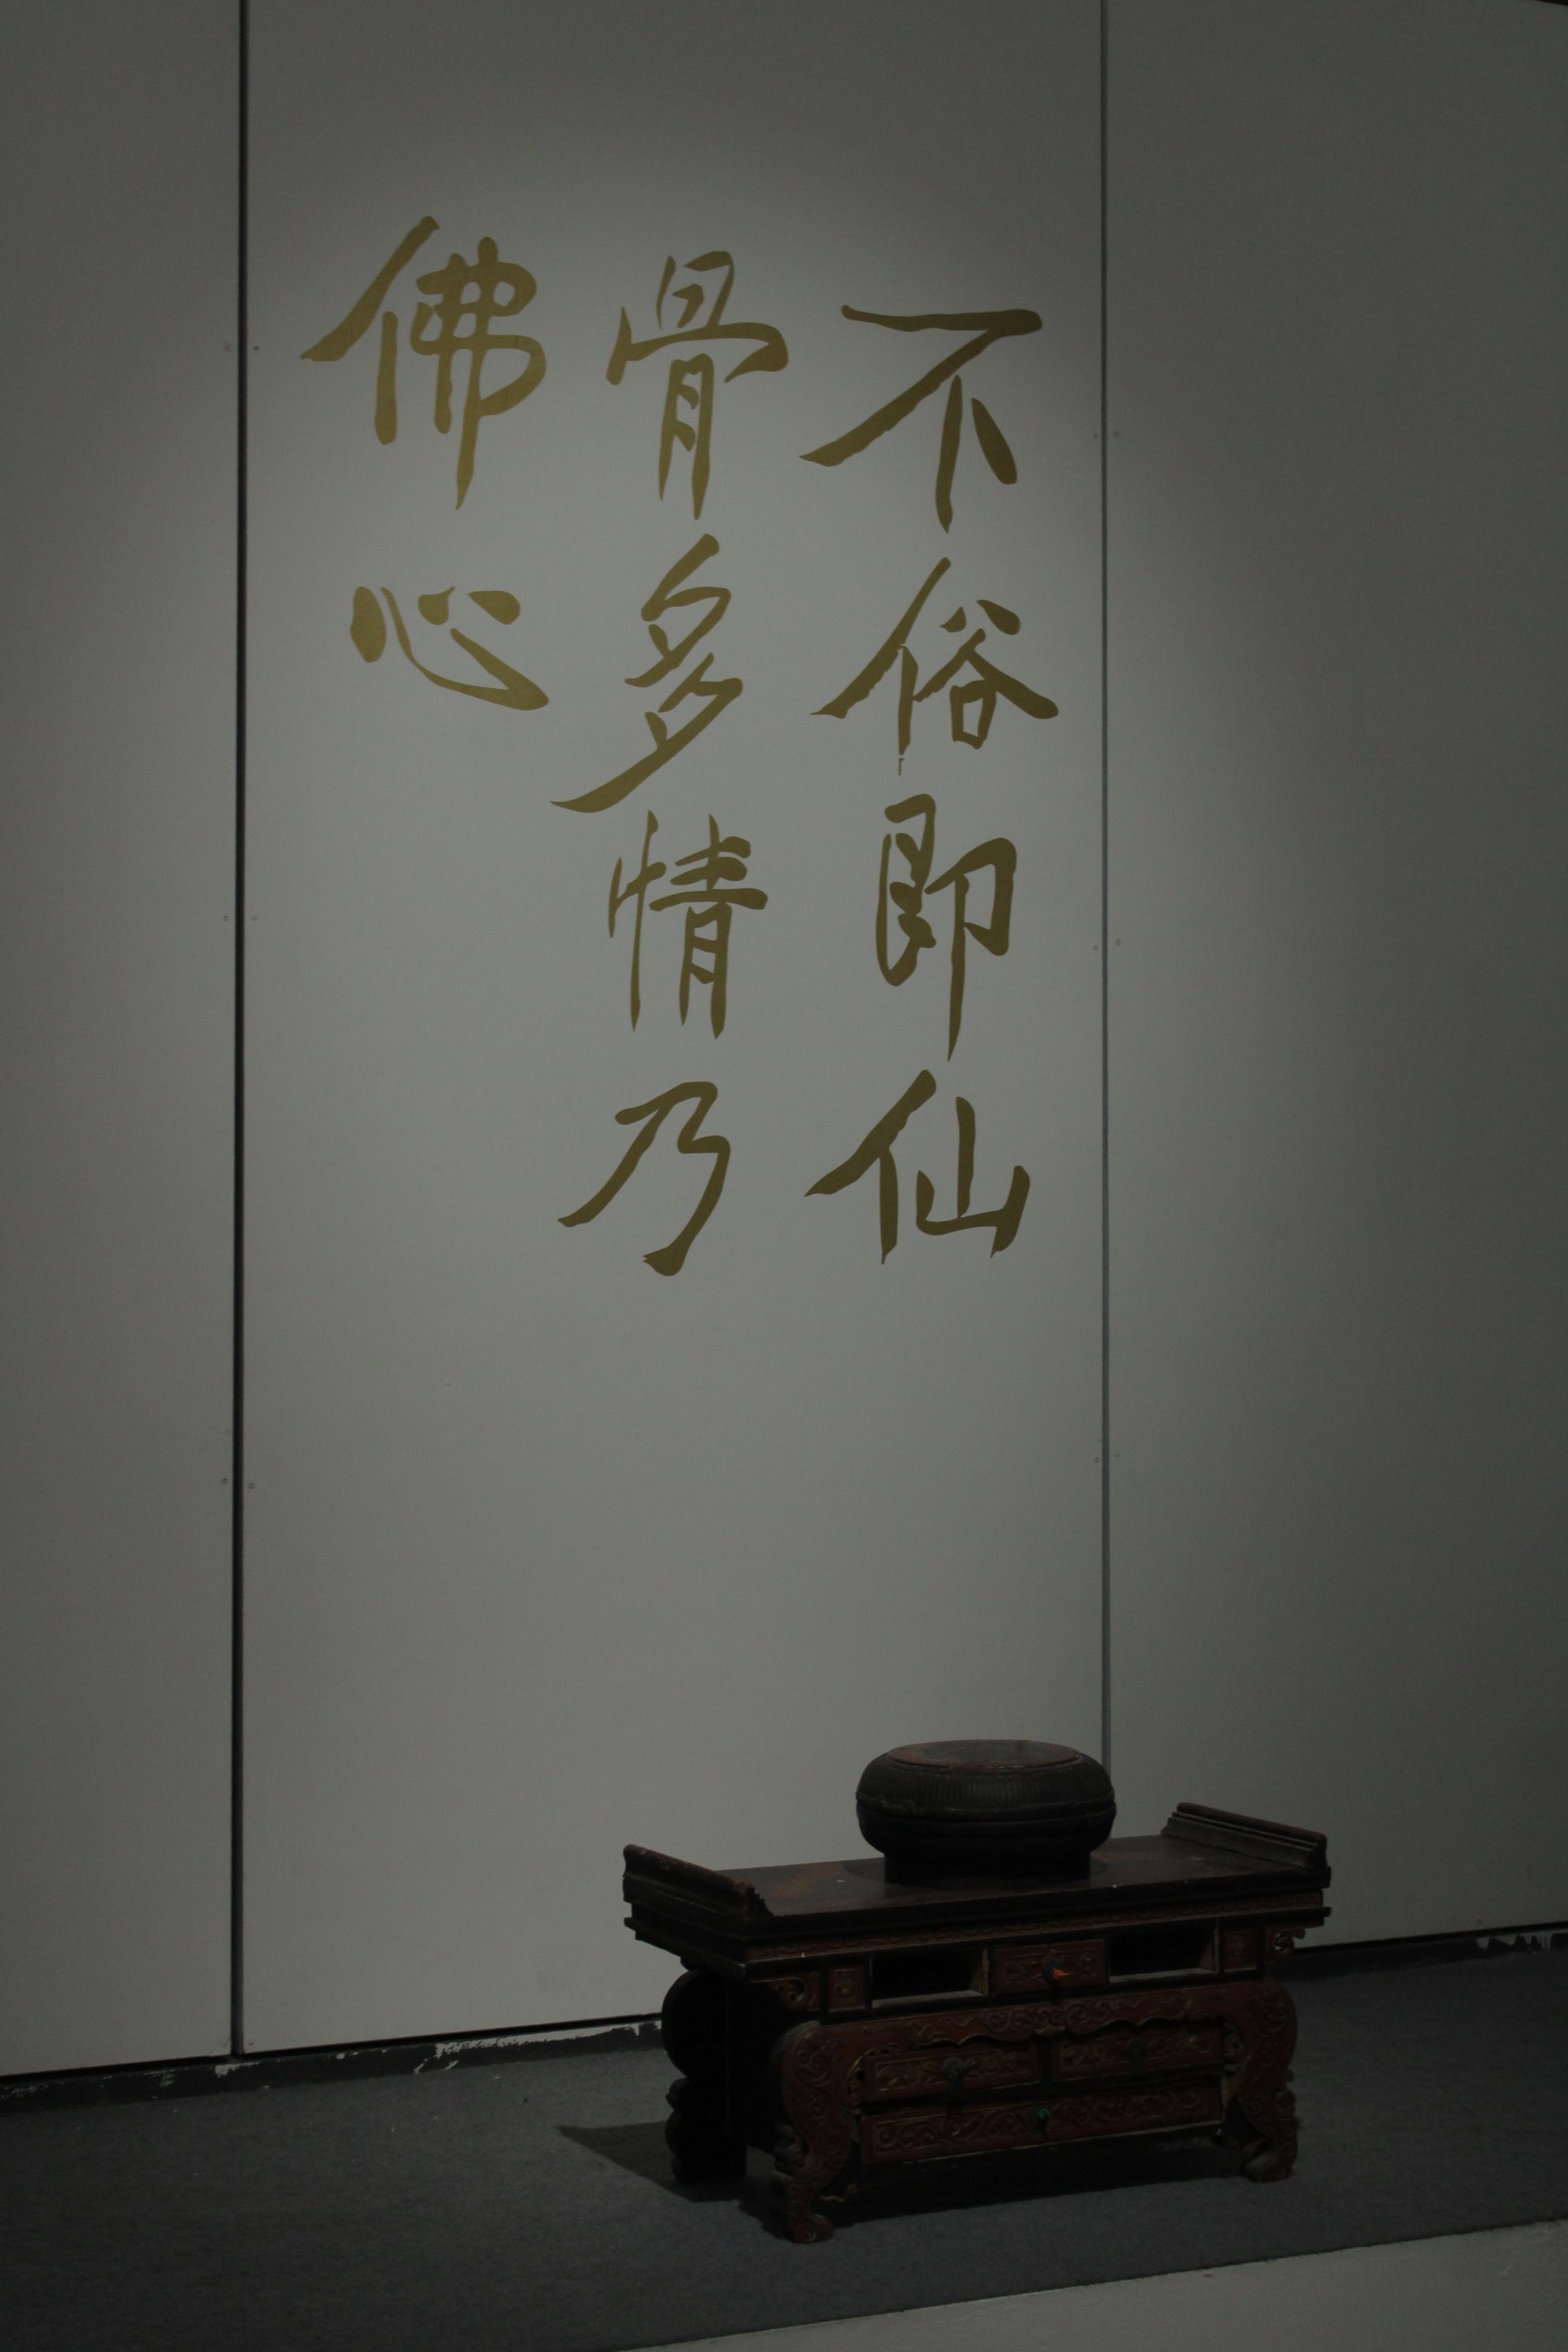 不俗即仙
骨多情乃
佛心